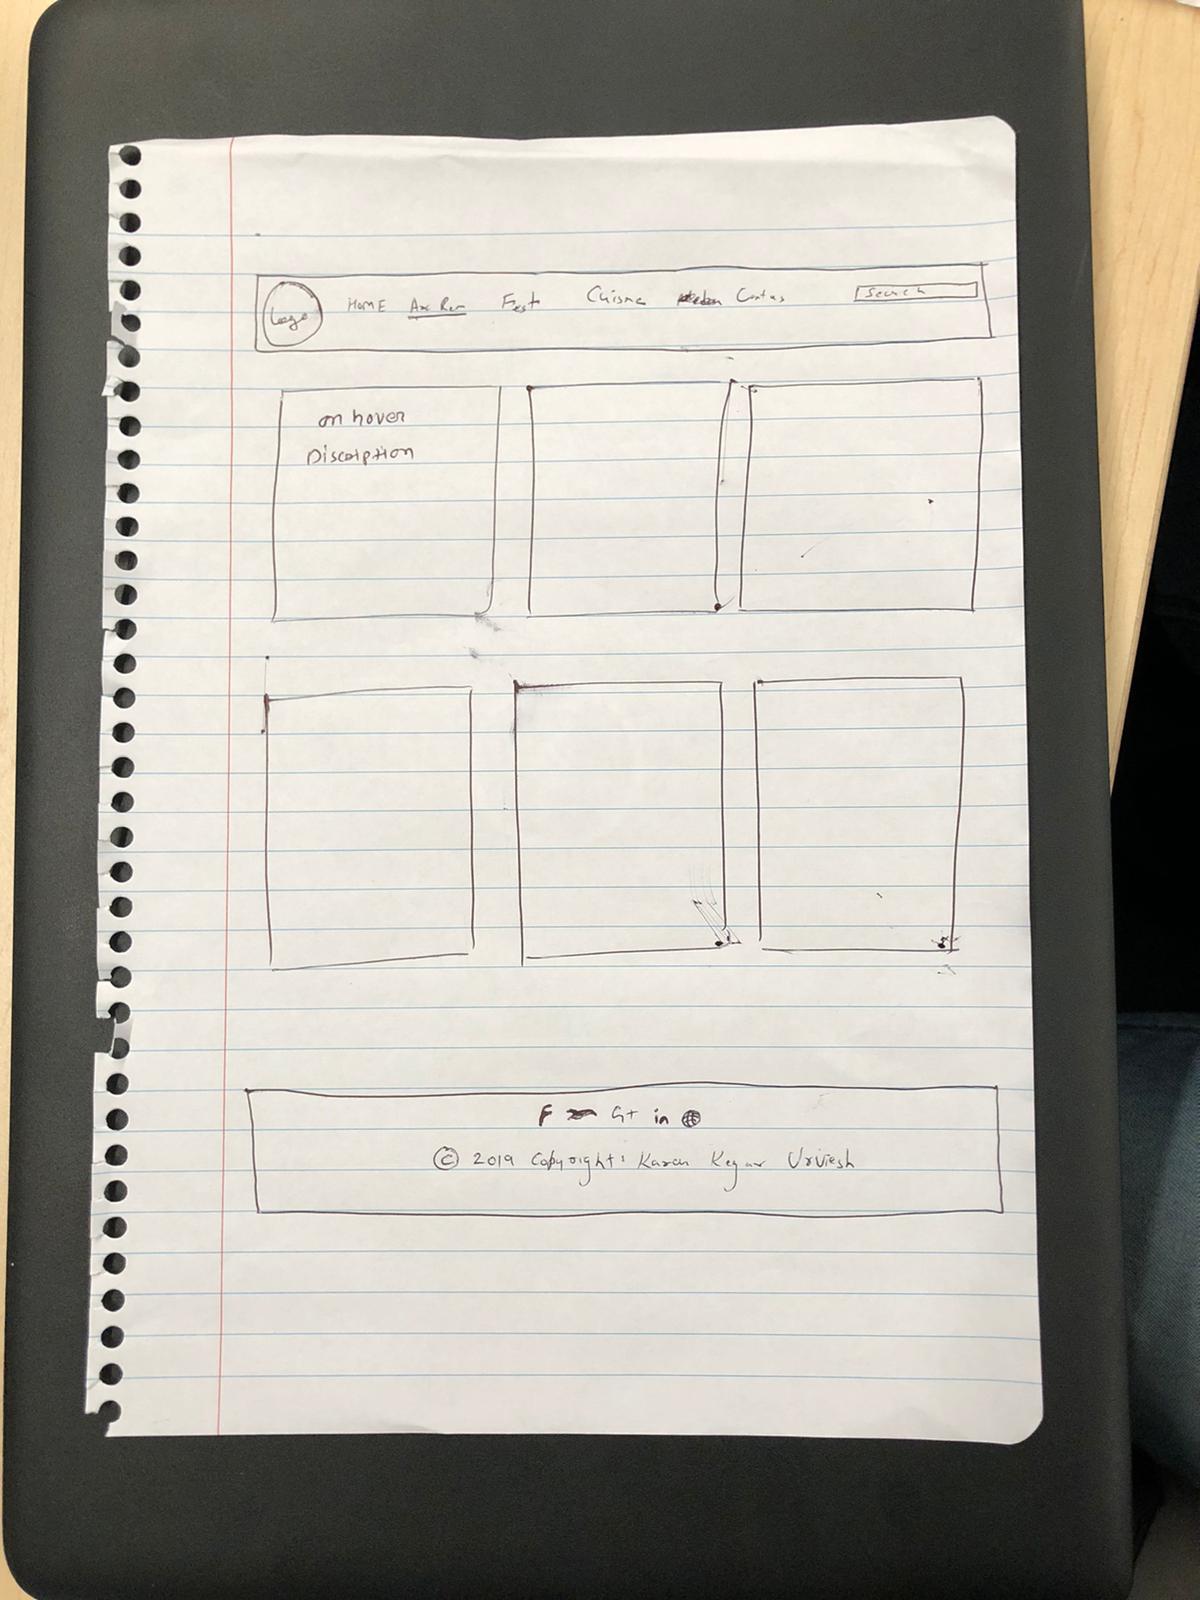 Logo HOME Fest Cuisine Contus Search
on hover
Discription
F G+ in
© 2019 Copyright: Karan Urviesh